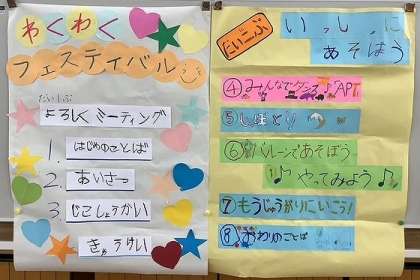 わくわく
フェスティバル
だい1ぶ
よろしくミーティング
1. はじめのことば
2. あいさつ
3. じこしょうかい
きゅうけい
だい二ぶ
いっしょに
あそぼう
④みんなでダンス♪APT
⑤しりとり
⑥バルーンであそぼう
♪やってみよう♫
⑦もうじゅうがりにいこう!
⑧おわりのことば